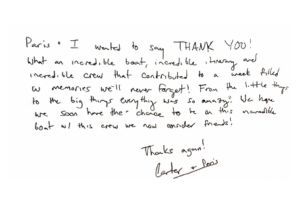 Paris • I wanted to say THANK YOU!
What an incredible boat, incredible itinerary and
incredible crew that contributed to a week filled
w memories we'll never forget! From the little things
to the big things everything was so amazing! We hope
we soon have the chance to be on this incredible
boat w/ this crew we now consider friends!
Thanks again!
Carter +